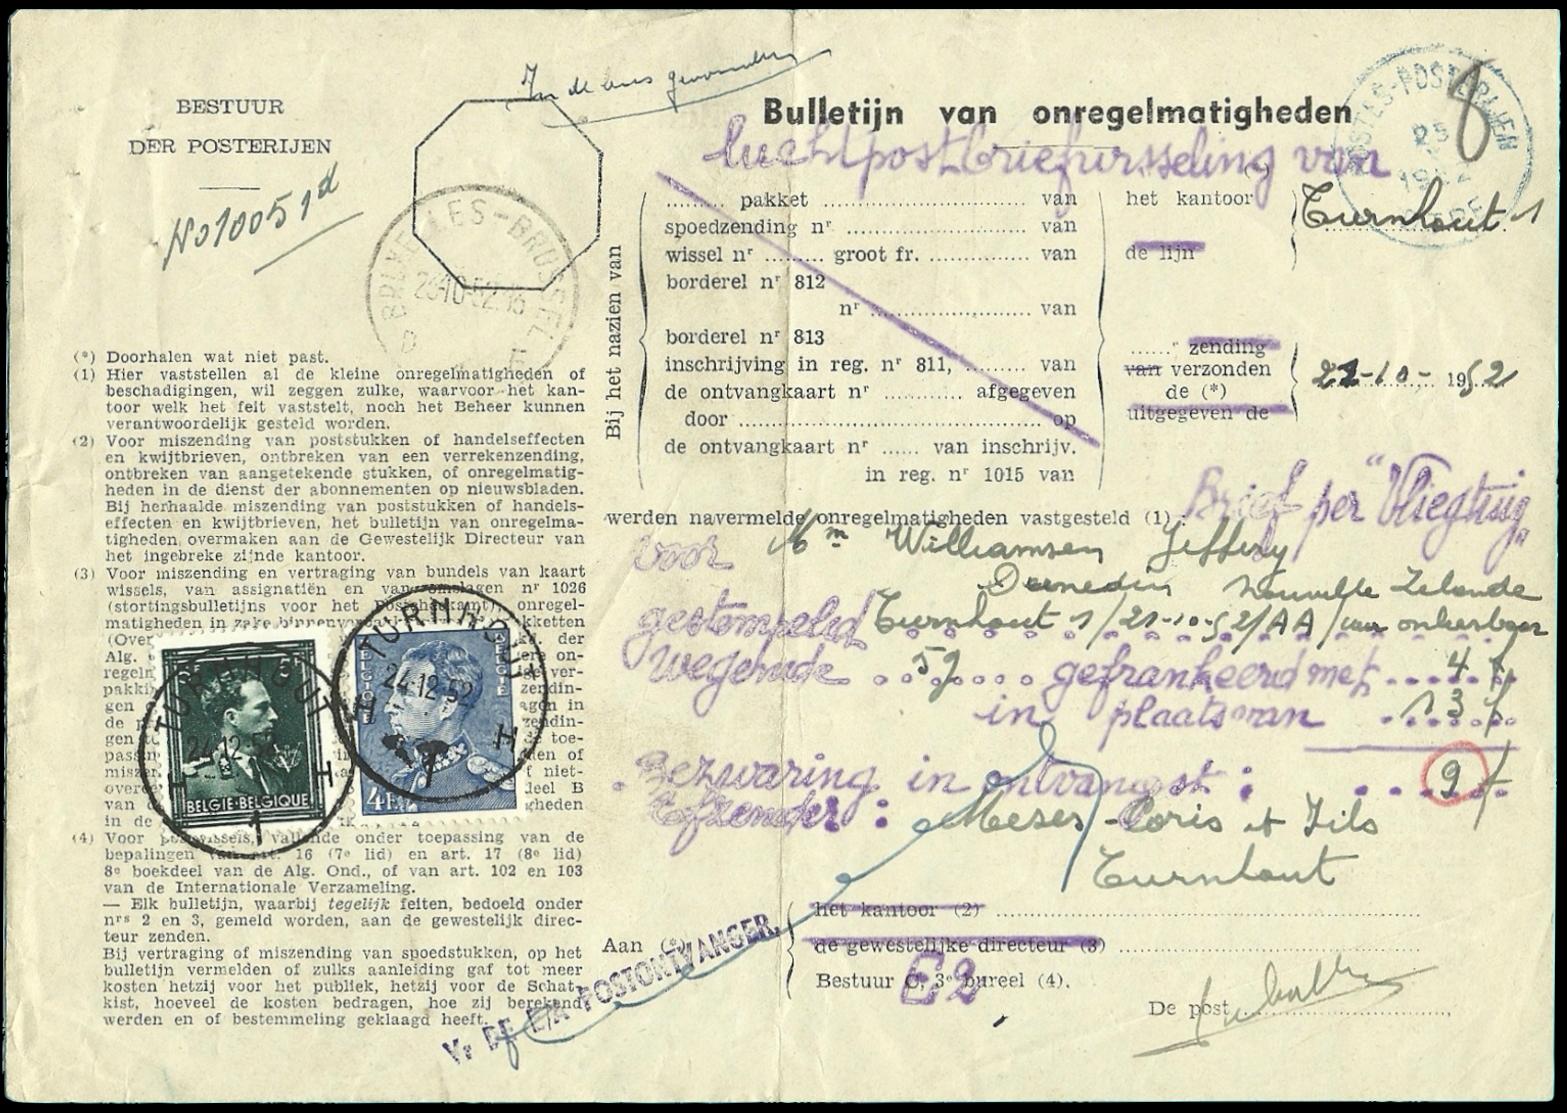 In de bus gevonden
BESTUUR
DER POSTERIJEN
No 10051 d
BRUXELLES-BRUSSEL
28-10-52 16
D E
Bulletijn van onregelmatigheden
luchtpostbriefwisseling van
POSTES-POSTERIJEN
25
8
Bij het nazien van
......... pakket ............................ van
spoedzending nr ......................... van
wissel nr ......... groot fr. ............... van
borderel nr 812
nr ......................... van
borderel nr 813
inschrijving in reg. nr 811, ......... van
de ontvangkaart nr ........... afgegeven
door .............................................. op
de ontvangkaart nr ...... van inschrijv.
in reg. nr 1015 van
het kantoor
de lijn
Turnhout 1
......" zending
van verzonden
de (*)
uitgegeven de
21-10- 1952
(*) Doorhalen wat niet past.
(1) Hier vaststellen al de kleine onregelmatigheden of
beschadigingen, wil zeggen zulke, waarvoor het kan-
toor welk het feit vaststelt, noch het Beheer kunnen
verantwoordelijk gesteld worden.
(2) Voor miszending van poststukken of handelseffecten
en kwijtbrieven, ontbreken van een verrekenzending,
ontbreken van aangetekende stukken, of onregelmatig-
heden in de dienst der abonnementen op nieuwsbladen.
Bij herhaalde miszending van poststukken of handels-
effecten en kwijtbrieven, het bulletijn van onregelma-
tigheden, overmaken aan de Gewestelijk Directeur van
het ingebreke zijnde kantoor.
(3) Voor miszending en vertraging van bundels van kaart
wissels, van assignatiën en van omslagen nr 1026
(stortingsbulletijns voor het Postcheckamt), onregel-
matigheden in zake binnenverpakketten
(Over
Alg.
regeln
pakki
gen
de p
gen
passin
miszen
overe
van
in de
der
zendin-
agen in
zendin-
de toe-
den of
f niet-
deel B
gheden
BELGIE-BELGIQUE
TURNHOUT
24-12-52
H 1 H
BELGIQUE
BELGIE
4F
TURNHOUT
24-12-52
H 1 H
(4) Voor postwissels, vallende onder toepassing van de
bepalingen van art. 16 (7e lid) en art. 17 (8e lid)
8e boekdeel van de Alg. Ond., of van art. 102 en 103
van de Internationale Verzameling.
— Elk bulletijn, waarbij tegelijk feiten, bedoeld onder
nrs 2 en 3, gemeld worden, aan de gewestelijk direc-
teur zenden.
Bij vertraging of miszending van spoedstukken, op het
bulletijn vermelden of zulks aanleiding gaf tot meer
kosten hetzij voor het publiek, hetzij voor de Schat-
kist, hoeveel de kosten bedragen, hoe zij berekend
werden en of bestemmeling geklaagd heeft.
Brief per "Vliegtuig"
werden navermelde onregelmatigheden vastgesteld (1) :
voor Mm Williamsen Jeffery
Dunedin Nouvelle Zelande
gestempeld Turnhout 1/21-10-52/AA/uur onleesbaar
Wegende . . 5g . . . . gefrankeerd met . . . . 4 f
in plaats van . . . . . 13 f
Bezwaring in ontvangst : . . . . 9 f
Afzender : Meses Coris et Fils
Turnhout
Aan (*)
het kantoor (2) ........................
de gewestelijke directeur (3) ........................
Bestuur C, 3e bureel (4).
E2
Vr DE E/A POSTONTVANGER,
De post